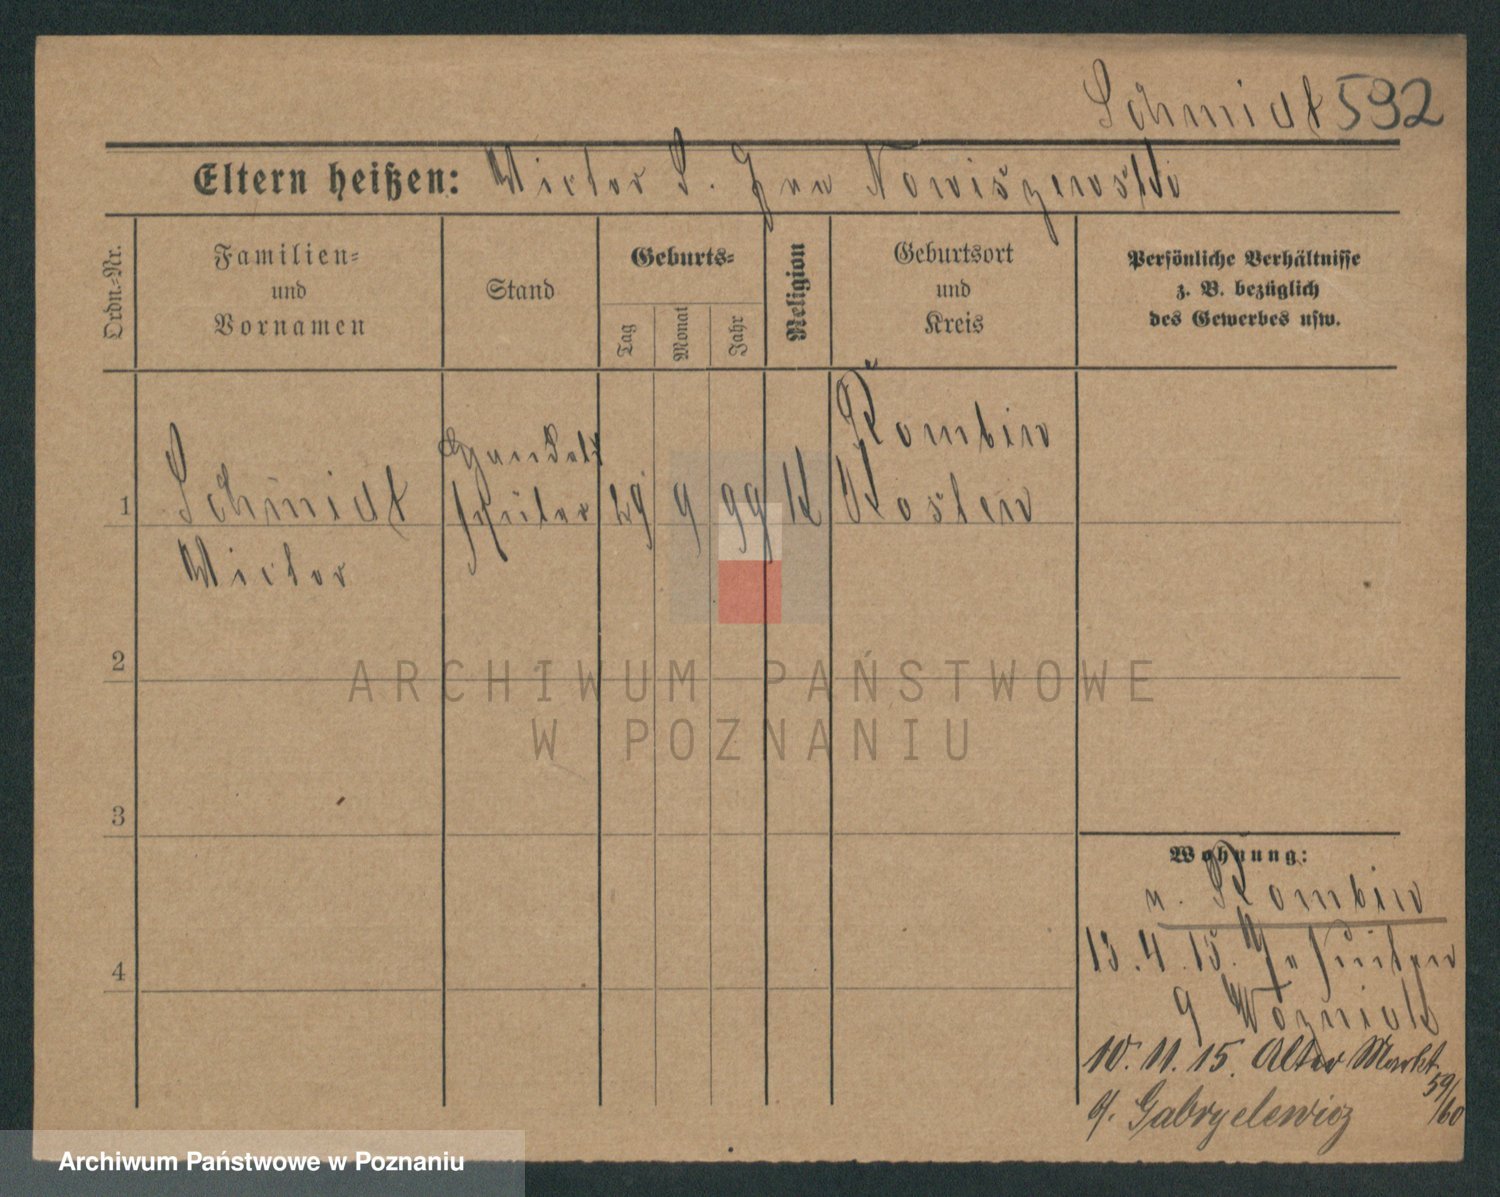 Schmidt 592
Eltern heißen: Victor S. Nowiszewski
Ordn.-Nr.
Familien-
und
Vornamen
Stand
Geburts-
Tag
Monat
Jahr
Religion
Geburtsort
und
Kreis
Persönliche Verhältnisse
z. B. bezüglich
des Gewerbes usw.
1 Schmidt
Victor
Handels
schüler
29 9 99 K
Rombin
Kosten
2
3
4
Wohnung:
v. Rombin
13.4.15. Jesuiten
9 Wozniak
10. 11. 15. Alter Markt
59/60
b/. Gabryelewicz
ARCHIWUM PAŃSTWOWE
W POZNANIU
Archiwum Państwowe w Poznaniu